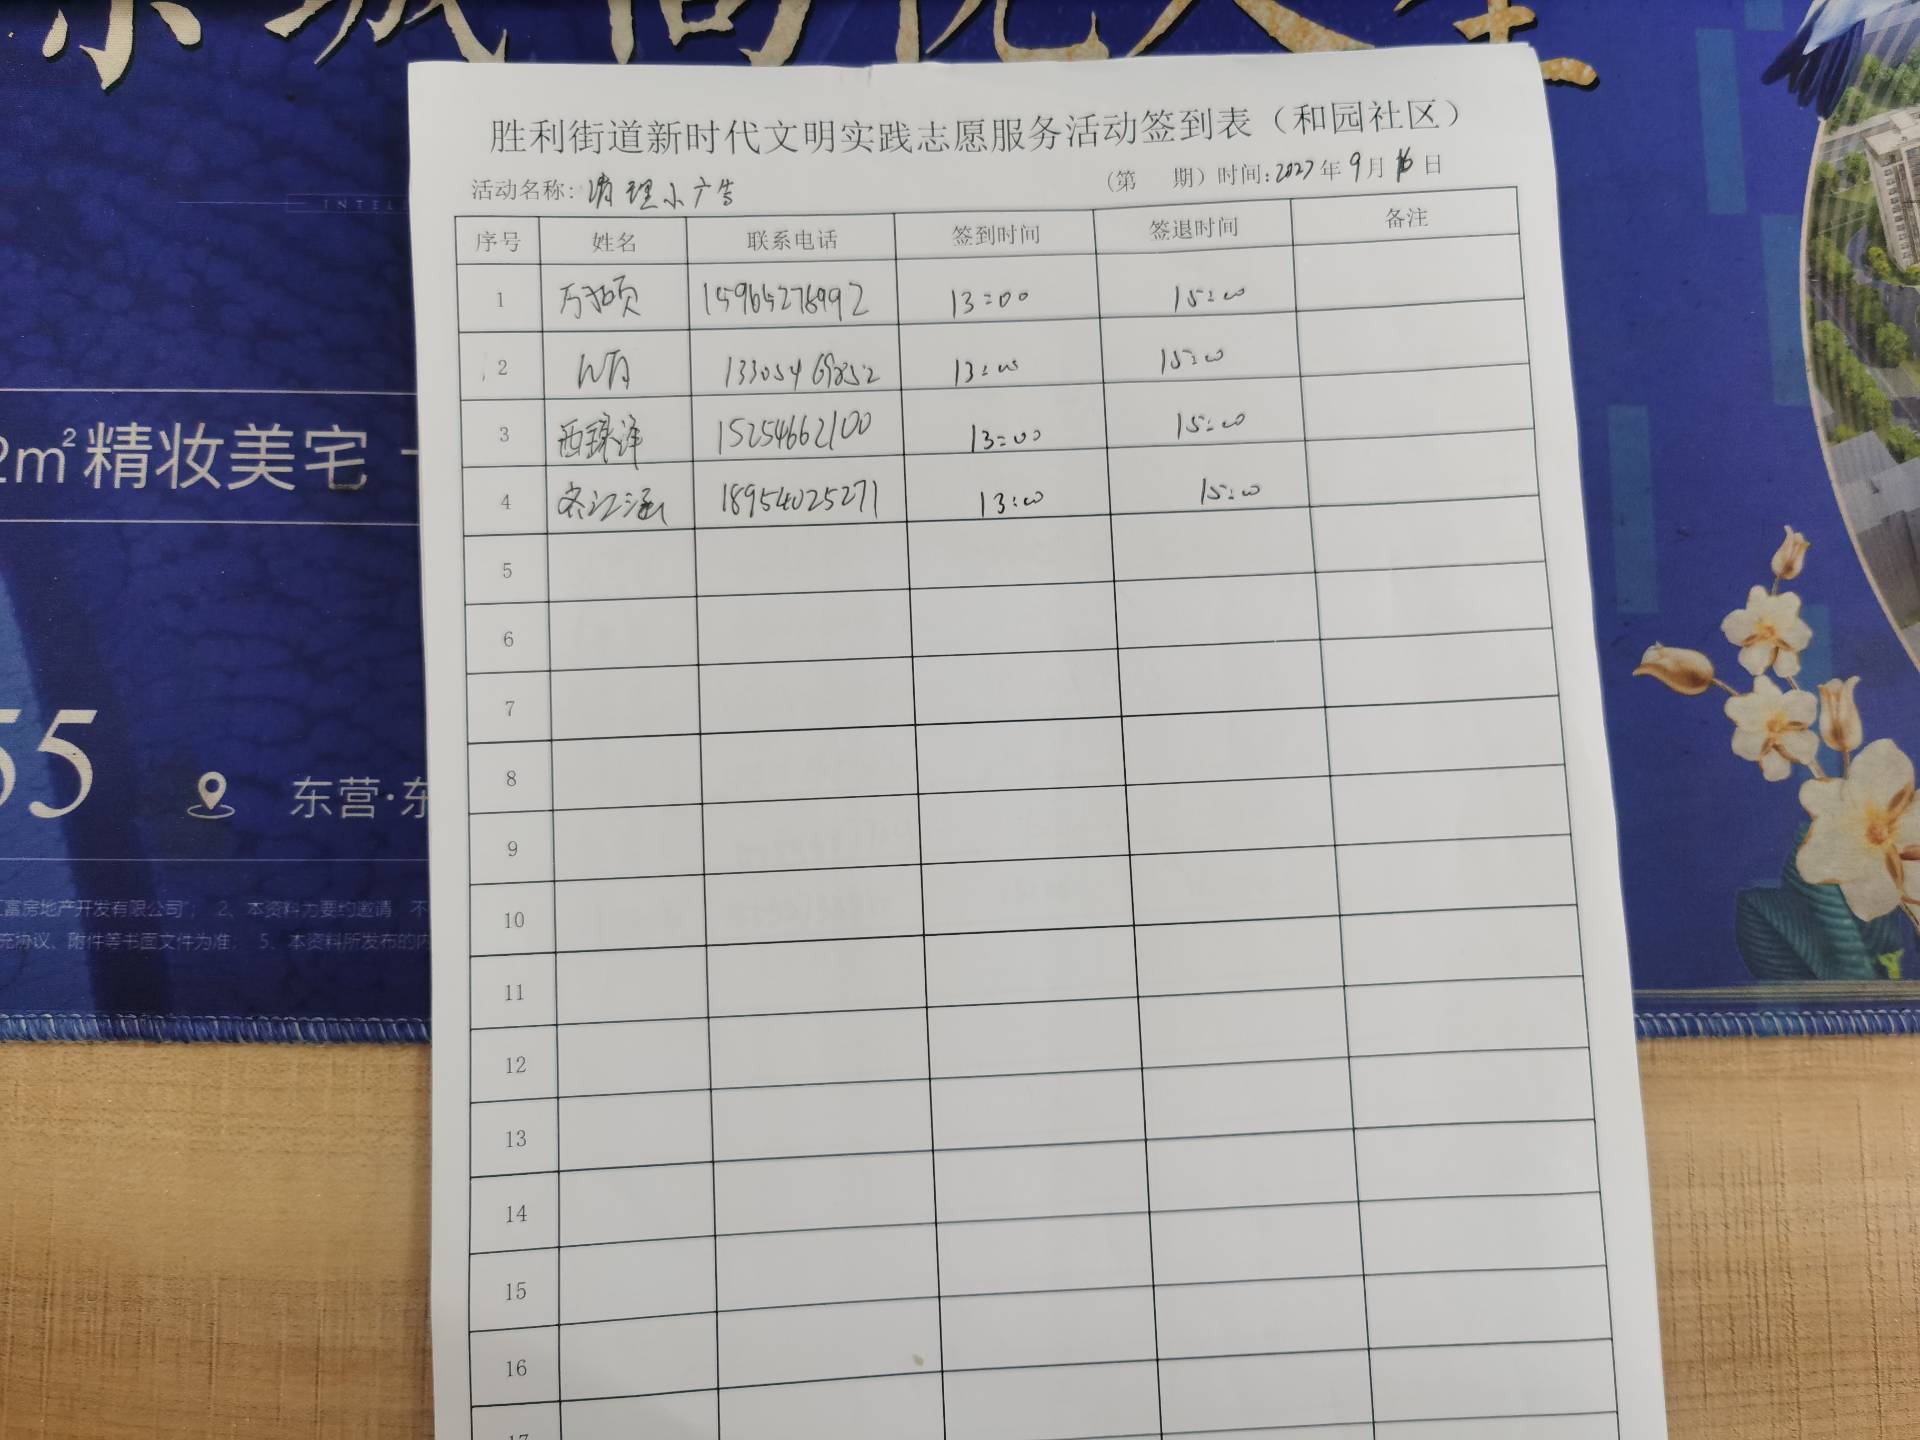 2m²精妆美宅
55
东营·东
INTELL
富房地产开发有限公司”； 2、本资料为要约邀请，不
充协议、附件等书面文件为准； 5、本资料所发布的内
胜利街道新时代文明实践志愿服务活动签到表（和园社区）
活动名称：清理小广告 （第 期）时间：2027年9月16日
序号 姓名 联系电话 签到时间 签退时间 备注
1 13:00 15:00
2 13:00 15:00
3 15254662100 13:00 15:00
4 18954025271 13:00 15:00
5
6
7
8
9
10
11
12
13
14
15
16
17